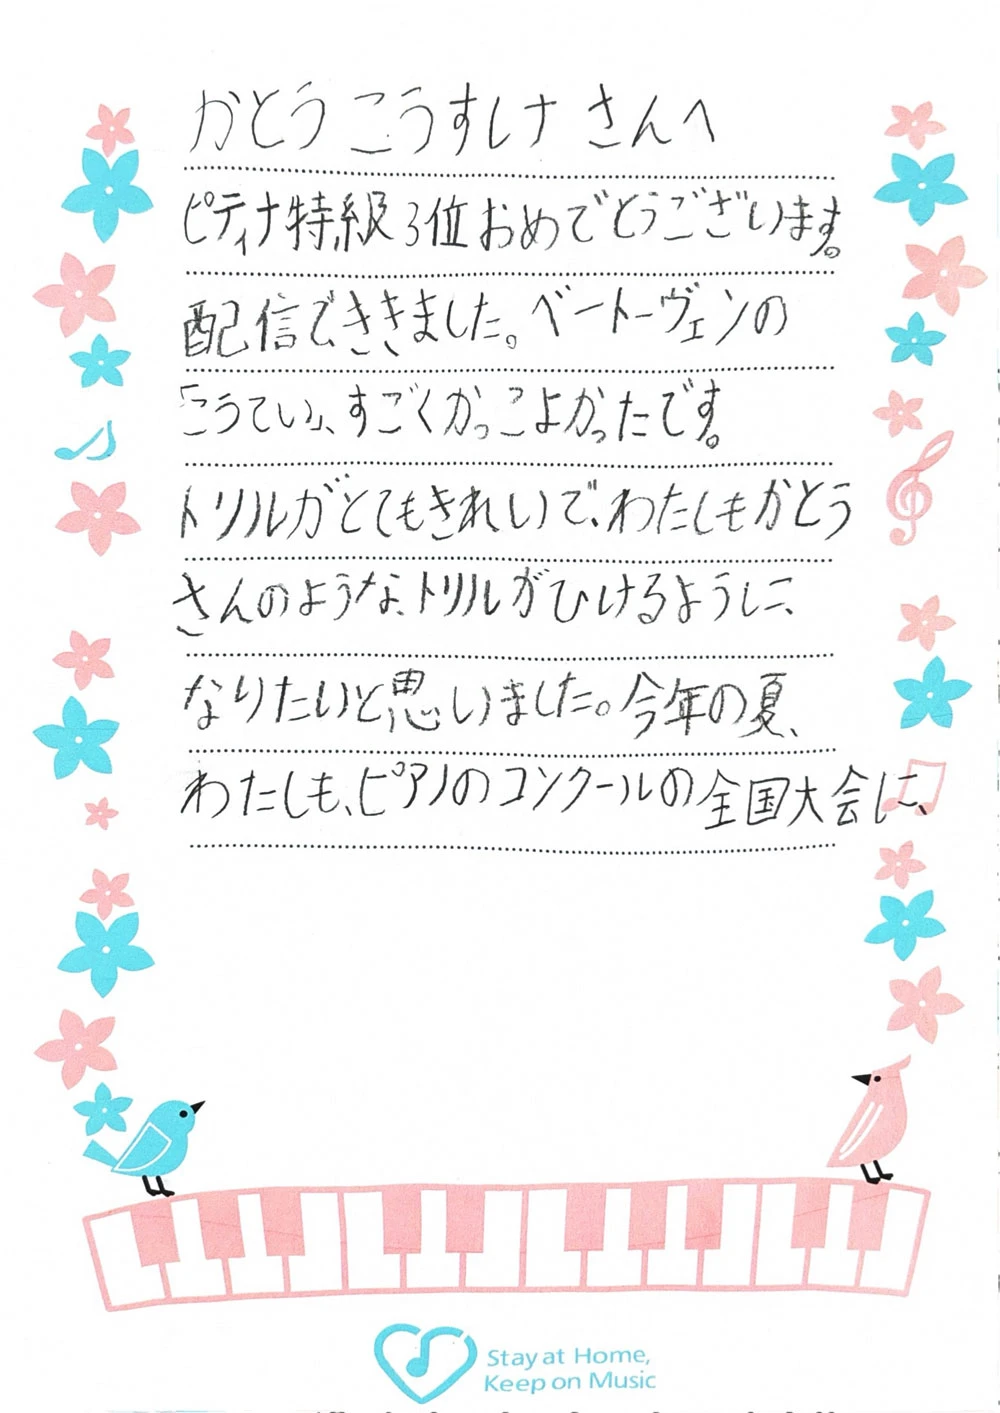 かとう こうすけ さんへ
ピティナ特級3位おめでとうございます。
配信で、ききました。ベートーヴェンの
「こうてい」、すごくかっこよかったです。
トリルがとてもきれいで、わたしもかとう
さんのような、トリルがひけるように、
なりたいと思いました。今年の夏、
わたしも、ピアノのコンクールの全国大会に、
Stay at Home,
Keep on Music